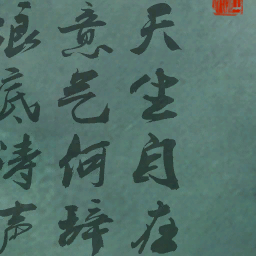 天生自在
意气何辞
浪底涛声